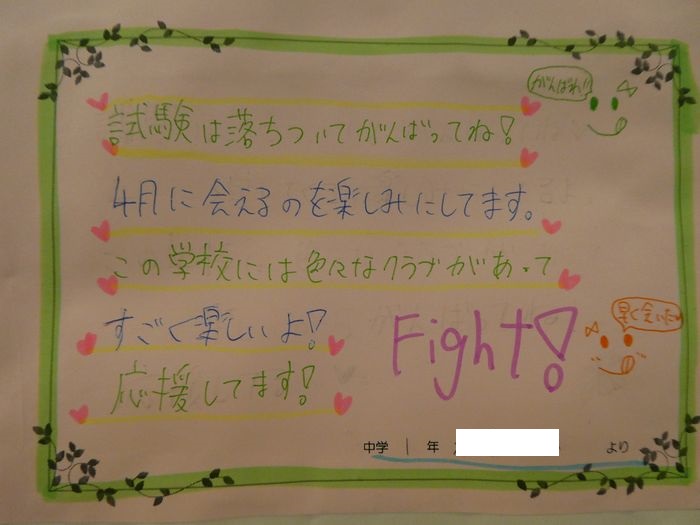 がんばれ!!
試験は落ちついてがんばってね!
4月に会えるのを楽しみにしてます。
この学校には色々なクラブがあって
すごく楽しいよ!
応援してます!
Fight!
早く会いたい
中学 1 年 より